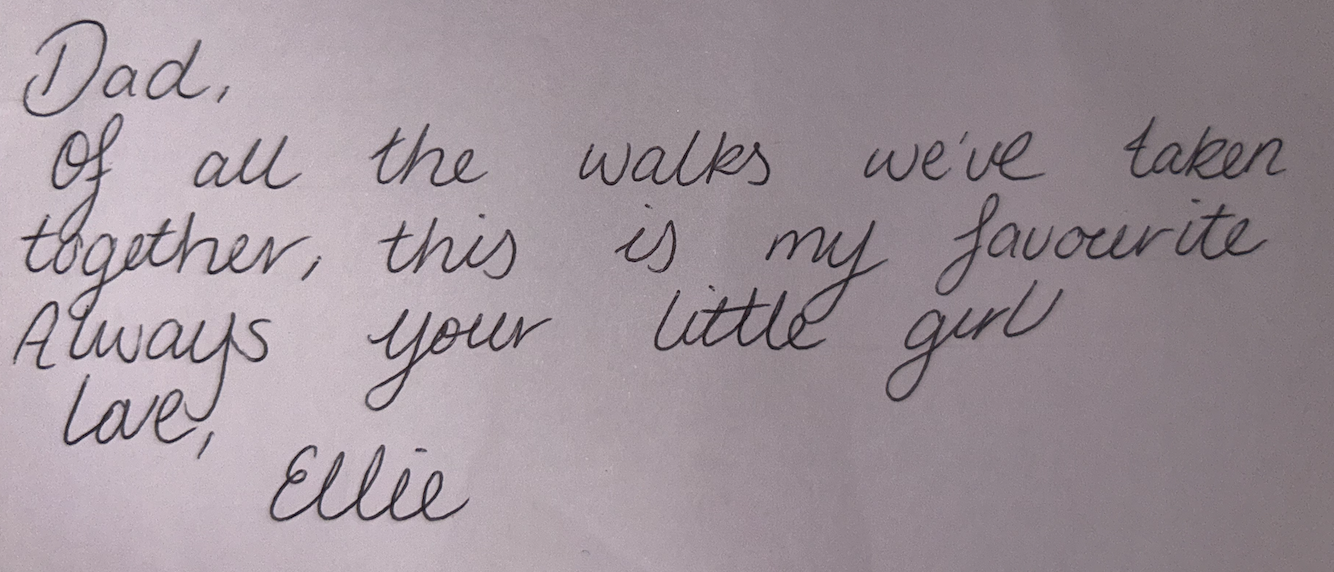 Dad,
Of all the walks we've taken
together, this is my favourite
Always your little girl
Love,
Ellie